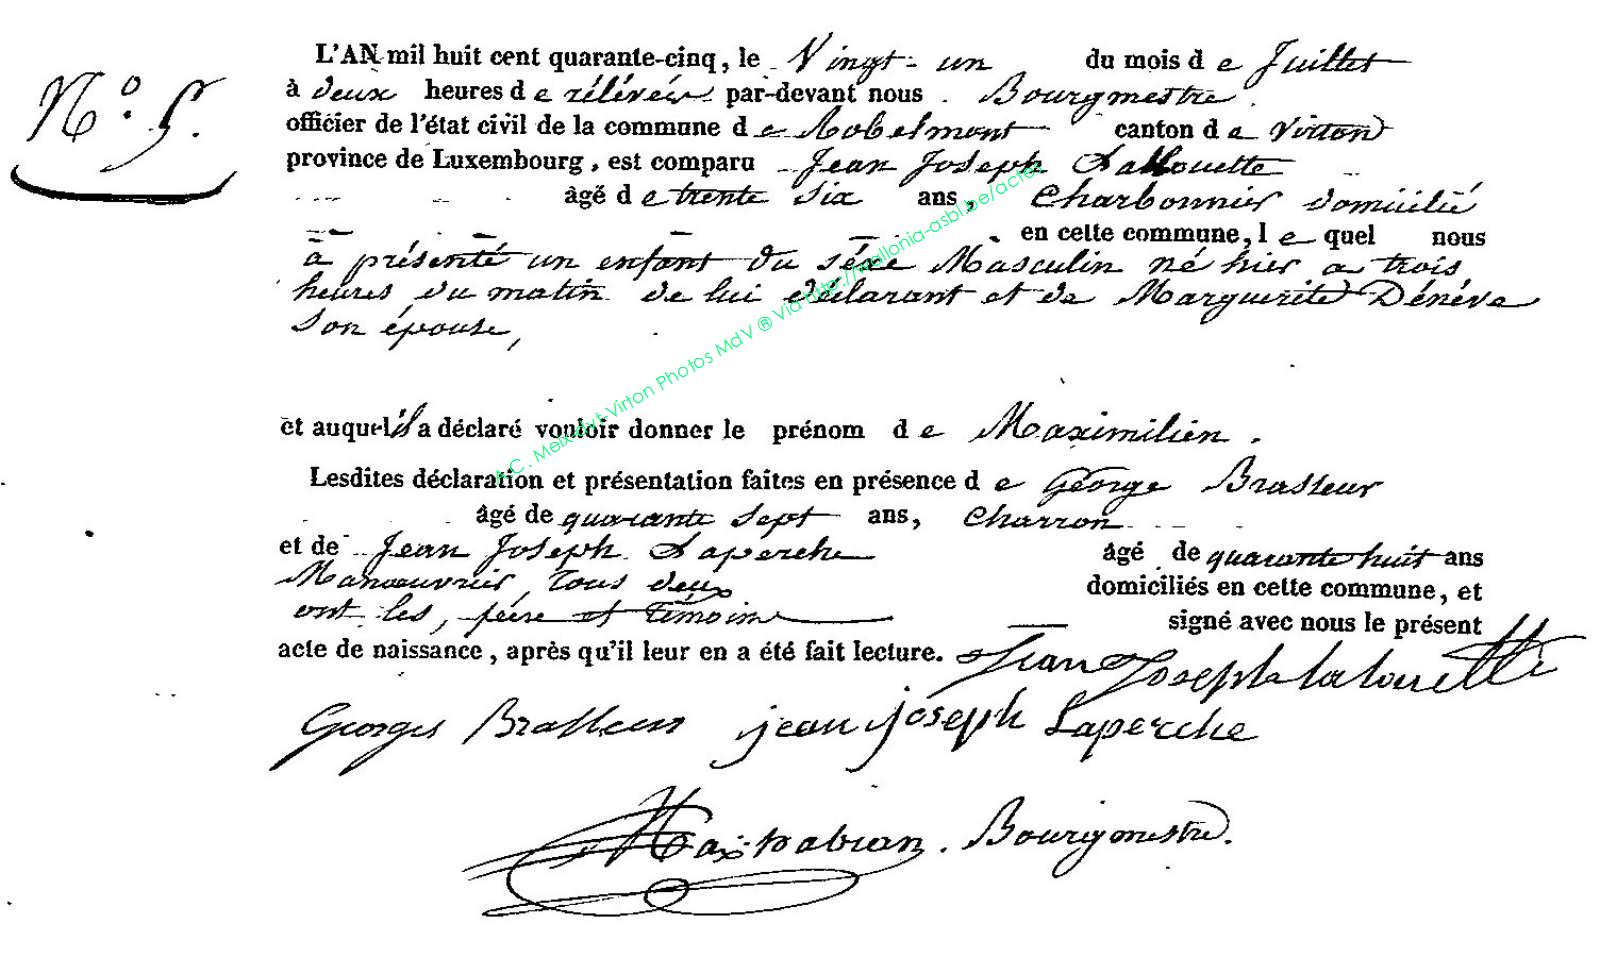 L'AN mil huit cent quarante-cinq, le Vingt-un du mois de Juillet
N.° 5.
à deux heures de rélévée par-devant nous Bourgmestre.
officier de l'état civil de la commune de Robelmont canton de Virton
province de Luxembourg, est comparu Jean Joseph Lallouette
âgé de trente six ans, Charbonnier domicilié
en cette commune, lequel nous
à présenté un enfant du séxe Masculin né hier a trois
heures du matin de lui déclarant et de Marguerite Dénéve
son épouse,
et auquel il a déclaré vouloir donner le prénom de Maximilien.
Lesdites déclaration et présentation faites en présence de George Brasseur
âgé de quarante sept ans, Charron
et de Jean Joseph Laperche âgé de quarante huit ans
Manoeuvrier, tous deux domiciliés en cette commune, et
ont les, père et témoins signé avec nous le présent
acte de naissance, après qu'il leur en a été fait lecture. Jean Joseph lalouette
Georges Brasseur jean joseph Laperche
Bourgmestre.
A.C. Meix-dvt-Virton Photos MdV ® Via http://wallonia-asbl.be/acte/